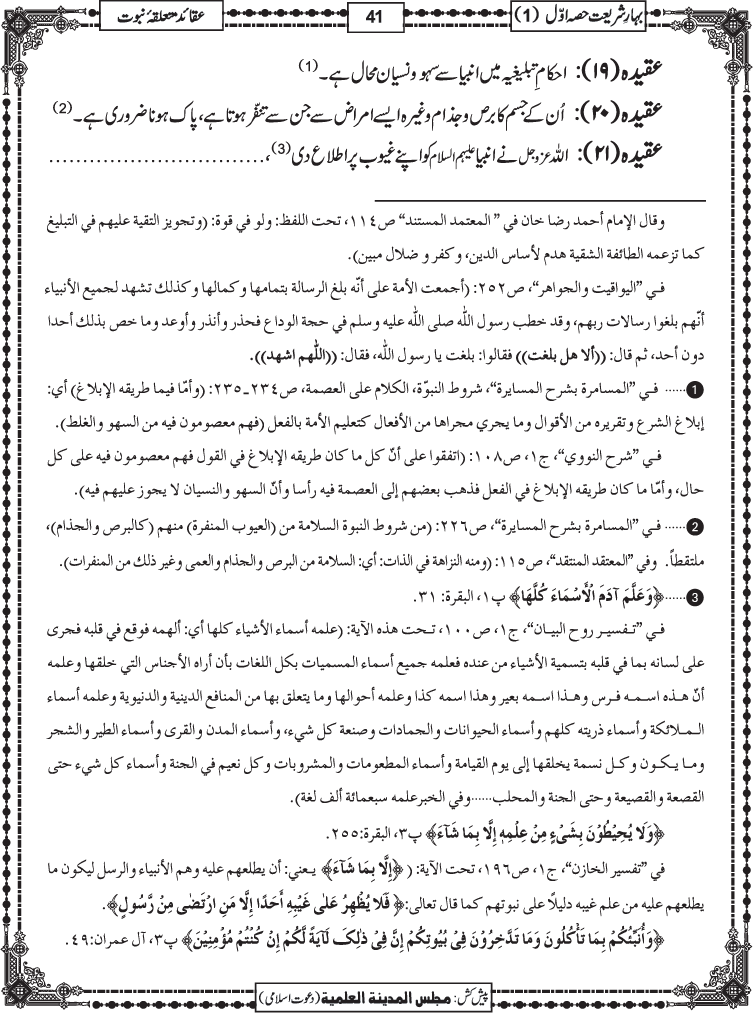 بہارِ شریعت حصہ اوّل (1)
41
عقائد متعلقۂ نبوت
عقیدہ (۱۹): احکامِ تبلیغیہ میں انبیا سے سہو و نسیان محال ہے۔ (1)
عقیدہ (۲۰): اُن کے جسم کا برص و جذام وغیرہ ایسے امراض سے جن سے تنفّر ہوتا ہے، پاک ہونا ضروری ہے۔ (2)
عقیدہ (۲۱): اللہ عزوجل نے انبیا علیہم السلام کو اپنے غیوب پر اطلاع دی (3)، ...............................
وقال الإمام أحمد رضا خان في ”المعتمد المستند“ ص۱۱٤، تحت اللفظ: ولو في قوة: (وتجويز التقية عليهم في التبليغ
كما تزعمه الطائفة الشقية هدم لأساس الدين، وكفر و ضلال مبين).
فـي ”اليواقيت والجواهر“، ص۲۵۲: (أجمعت الأمة على أنّه بلغ الرسالة بتمامها وكمالها وكذلك تشهد لجميع الأنبياء
أنّهم بلغوا رسالات ربهم، وقد خطب رسول الله صلى الله عليه وسلم في حجة الوداع فحذر وأنذر وأوعد وما خص بذلك أحدا
دون أحد، ثم قال: ((ألا هل بلغت)) فقالوا: بلغت يا رسول الله، فقال: ((اللّٰهم اشهد)).
1 ...... فـي ”المسامرة بشرح المسايرة“، شروط النبوّة، الكلام على العصمة، ص۲۳٤ـ۲۳۵: (وأمّا فيما طريقه الإبلاغ) أي:
إبلاغ الشرع وتقريره من الأقوال وما يجري مجراها من الأفعال كتعليم الأمة بالفعل (فهم معصومون فيه من السهو والغلط).
فـي ”شرح النووي“، ج۱، ص۱۰۸: (اتفقوا على أنّ كل ما كان طريقه الإبلاغ في القول فهم معصومون فيه على كل
حال، وأمّا ما كان طريقه الإبلاغ في الفعل فذهب بعضهم إلى العصمة فيه رأسا وأنّ السهو والنسيان لا يجوز عليهم فيه).
2 ...... فـي ”المسامرة بشرح المسايرة“، ص۲۲٦: (من شروط النبوة السلامة من (العيوب المنفرة) منهم (كالبرص والجذام)،
ملتقطاً. وفي ”المعتقد المنتقد“، ص۱۱۵: (ومنه النزاهة في الذات: أي: السلامة من البرص والجذام والعمى وغير ذلك من المنفرات).
3 ...... ﴿وَعَلَّمَ آدَمَ الْأَسْمَاءَ كُلَّهَا﴾ پ۱، البقرة: ۳۱.
فـي ”تـفـسيـر روح البيـان“، ج۱، ص۱۰۰، تـحت هذه الآية: (علمه أسماء الأشياء كلها أي: ألهمه فوقع في قلبه فجرى
على لسانه بما في قلبه بتسمية الأشياء من عنده فعلمه جميع أسماء المسميات بكل اللغات بأن أراه الأجناس التي خلقها وعلمه
أنّ هـذه اسمـه فـرس وهـذا اسـمه بعير وهذا اسمه كذا وعلمه أحوالها وما يتعلق بها من المنافع الدينية والدنيوية وعلمه أسماء
الـمـلائكة وأسماء ذريته كلهم وأسماء الحيوانات والجمادات وصنعة كل شيء، وأسماء المدن والقرى وأسماء الطير والشجر
ومـا يـكـون وكـل نسمة يخلقها إلى يوم القيامة وأسماء المطعومات والمشروبات وكل نعيم في الجنة وأسماء كل شيء حتى
القصعة والقصيعة وحتى الجنة والمحلب......وفي الخبر علمه سبعمائة ألف لغة).
﴿وَلَا يُحِيْطُوْنَ بِشَيْءٍ مِّنْ عِلْمِهٖ إِلَّا بِمَا شَآءَ﴾ پ۳، البقرة:۲۵۵.
في ”تفسير الخازن“، ج۱، ص۱۹٦، تحت الآية: (﴿إِلَّا بِمَا شَآءَ﴾ يـعني: أن يطلعهم عليه وهم الأنبياء والرسل ليكون ما
يطلعهم عليه من علم غيبه دليلًا على نبوتهم كما قال تعالى:﴿فَلَا يُظْهِرُ عَلٰى غَيْبِهٖ أَحَدًا إِلَّا مَنِ ارْتَضٰى مِنْ رَّسُولٍ﴾.
﴿وَأُنَبِّئُكُمْ بِمَا تَأْكُلُونَ وَمَا تَدَّخِرُوْنَ فِيْ بُيُوتِكُمْ إِنَّ فِيْ ذٰلِكَ لَآيَةً لَّكُمْ إِنْ كُنْتُمْ مُؤْمِنِيْنَ﴾ پ۳، آل عمران:٤۹.
پیش کش: مجلس المدينة العلمية (دعوت اسلامی)